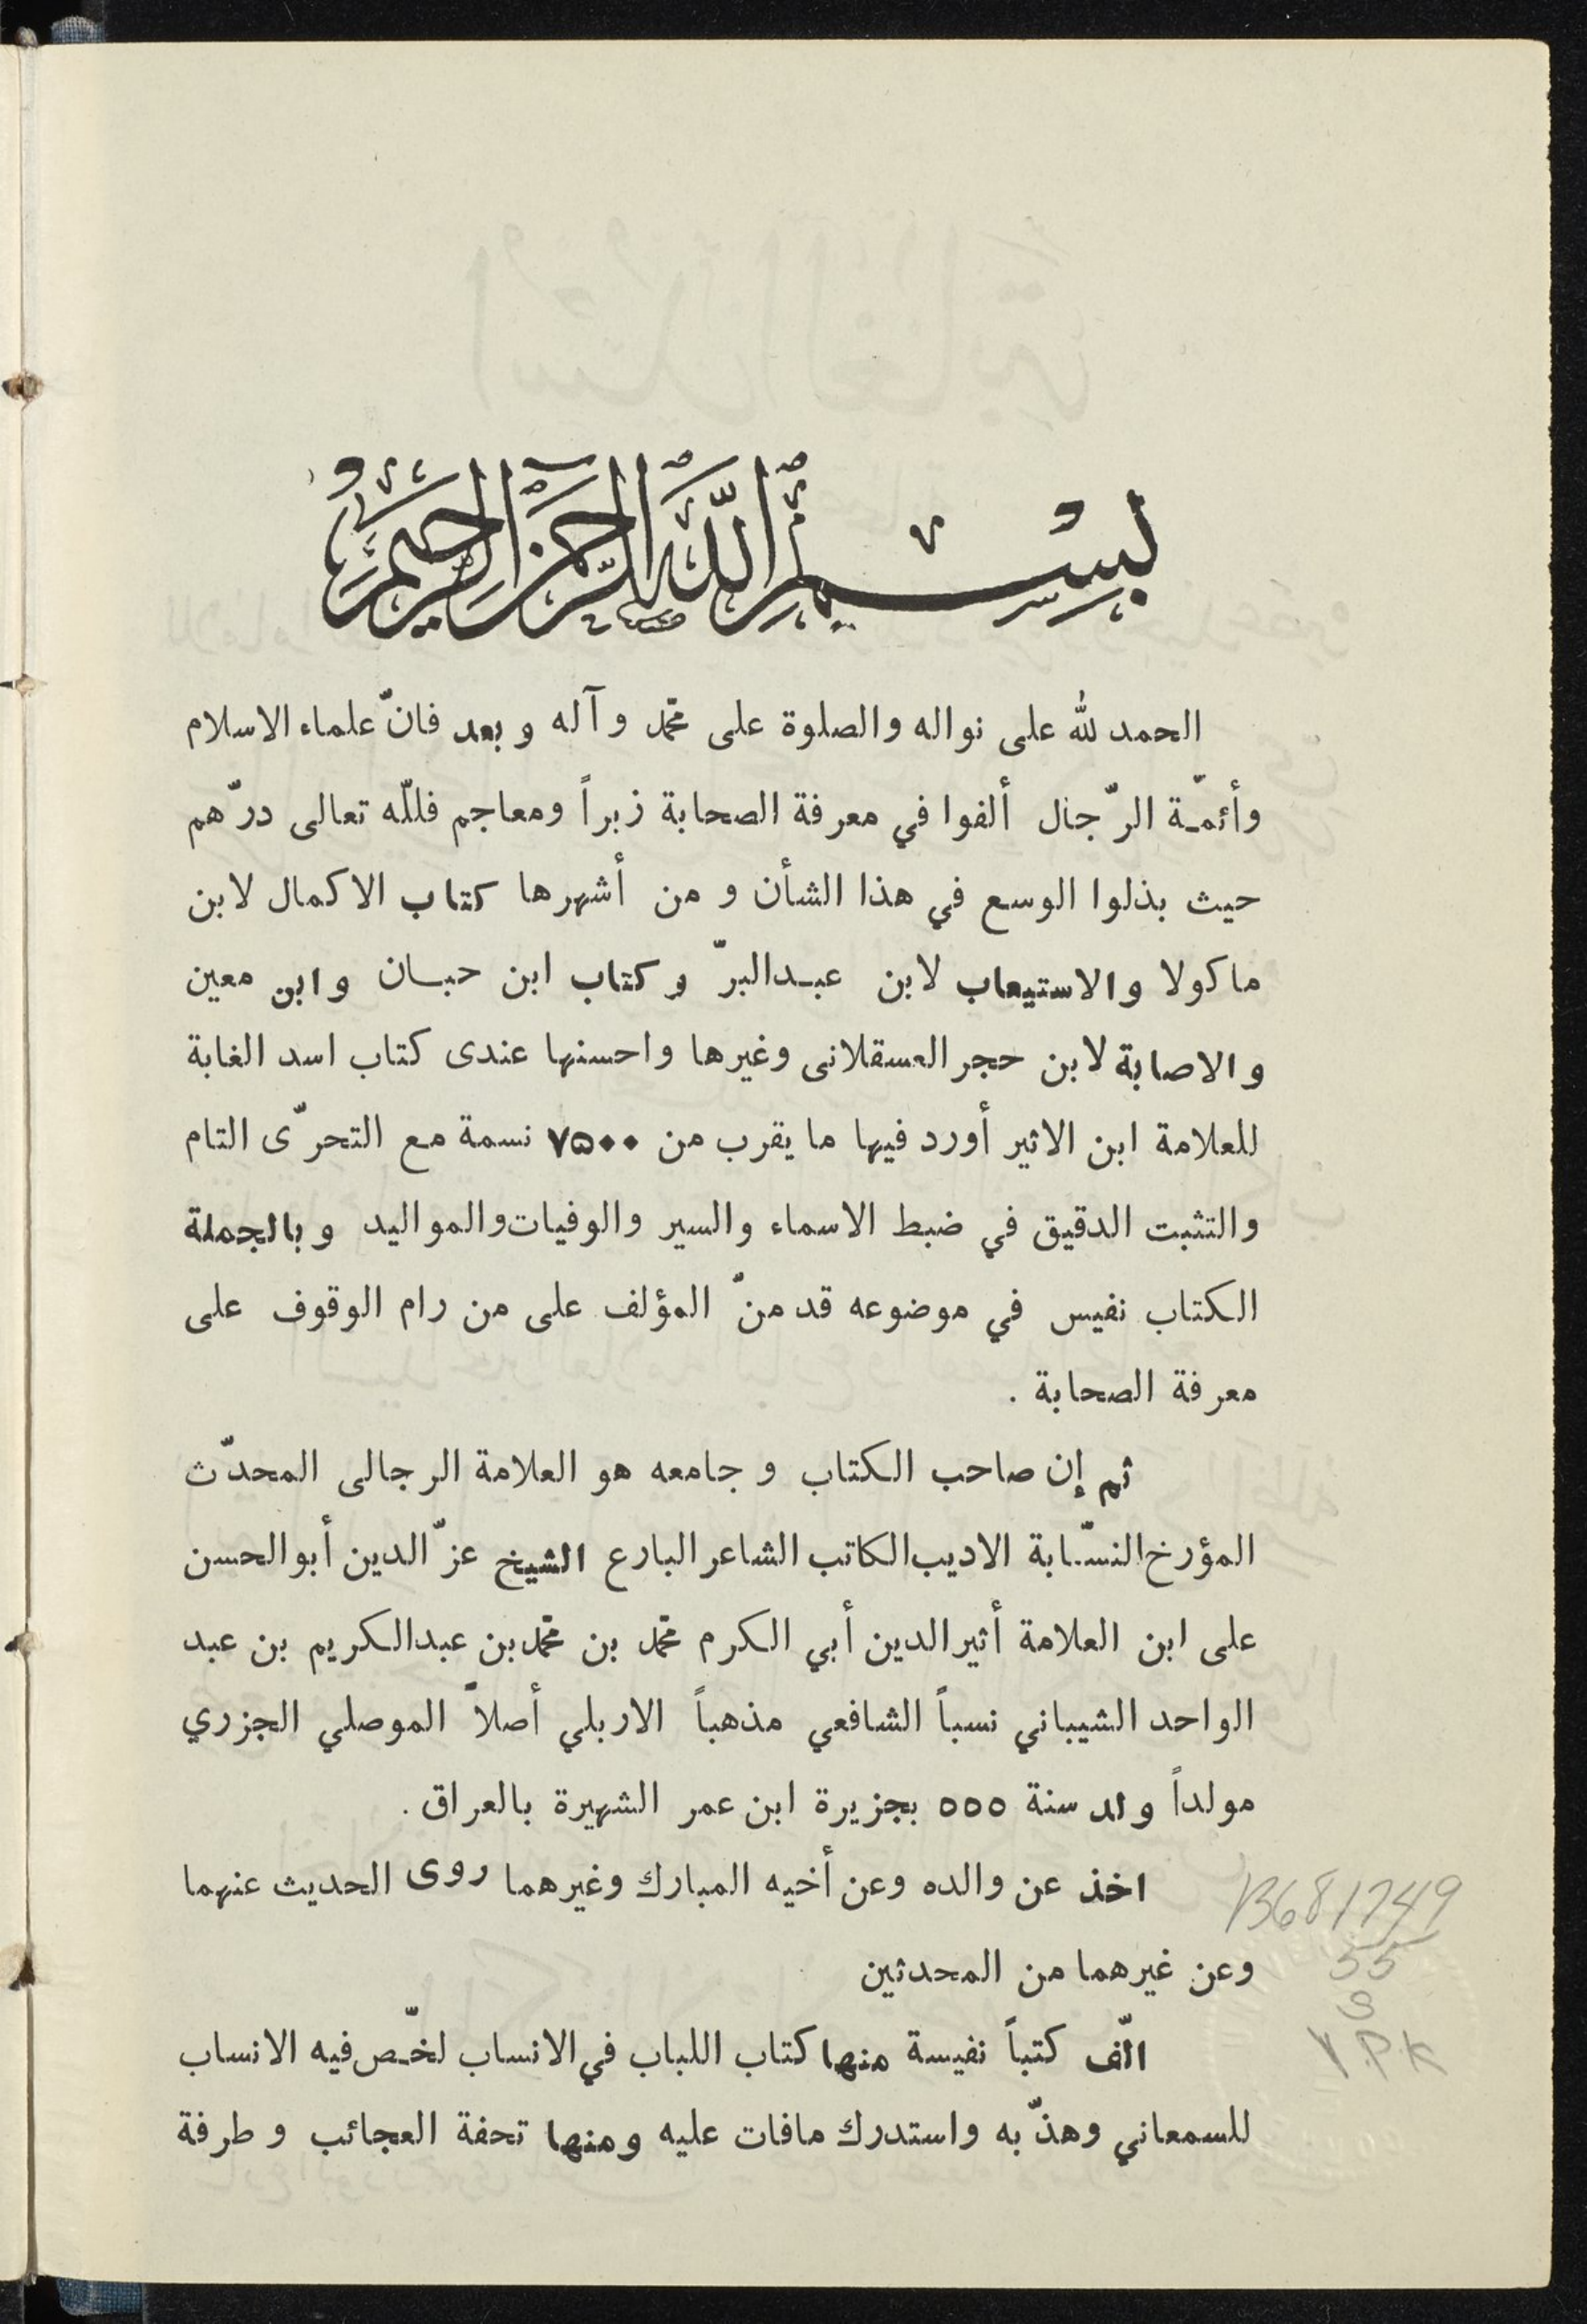 بسم الله الرحمن الرحيم
الحمد لله على نواله والصلوة على محمد وآله و بعد فانّ علماء الاسلام
وأئمّة الرّجال ألفوا في معرفة الصحابة زبراً ومعاجم فللّه تعالى درّهم
حيث بذلوا الوسع في هذا الشأن و من أشهرها كتاب الاكمال لابن
ماكولا والاستيعاب لابن عبدالبرّ وكتاب ابن حبان وابن معين
والاصابة لابن حجر العسقلانى وغيرها واحسنها عندى كتاب اسد الغابة
للعلامة ابن الاثير أورد فيها ما يقرب من ۷۵۰۰ نسمة مع التحرّى التام
والتثبت الدقيق في ضبط الاسماء والسير والوفيات والمواليد وبالجملة
الكتاب نفيس في موضوعه قد منّ المؤلف على من رام الوقوف على
معرفة الصحابة .
ثم إن صاحب الكتاب و جامعه هو العلامة الرجالى المحدّث
المؤرخ النسّابة الاديب الكاتب الشاعر البارع الشيخ عزّ الدين أبو الحسن
على ابن العلامة أثير الدين أبي الكرم محمد بن محمد بن عبدالكريم بن عبد
الواحد الشيباني نسباً الشافعي مذهباً الاربلي أصلاً الموصلي الجزري
مولداً ولد سنة ٥٥٥ بجزيرة ابن عمر الشهيرة بالعراق .
اخذ عن والده وعن أخيه المبارك وغيرهما روى الحديث عنهما
وعن غيرهما من المحدثين
الّف كتباً نفيسة منها كتاب اللباب في الانساب لخّص فيه الانساب
للسمعاني وهذّبه واستدرك مافات عليه ومنها تحفة العجائب و طرفة
B681749
55